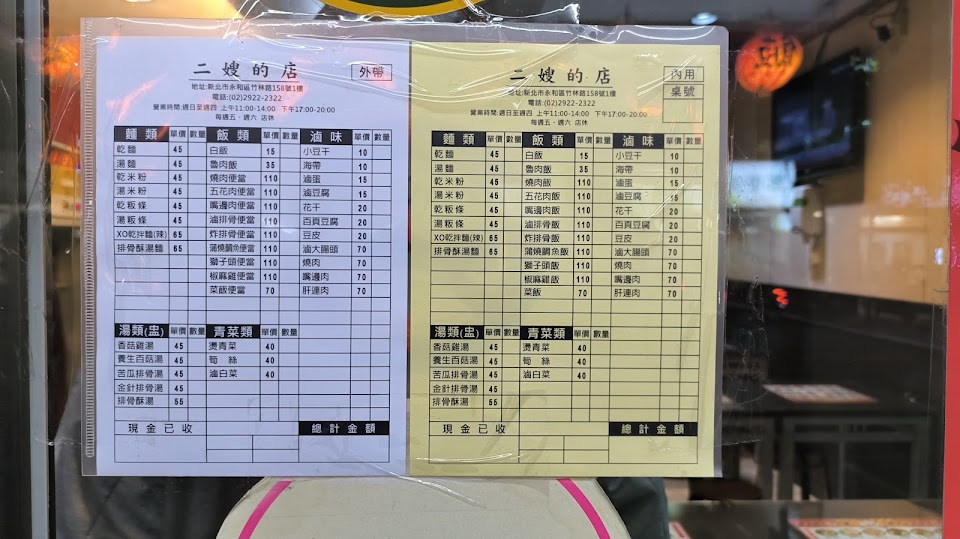 二嫂的店 外帶
地址:新北市永和區竹林路158號1樓
電話:(02)2922-2322
營業時間:週日至週四 上午11:00-14:00 下午17:00-20:00
每週五、週六 店休
麵類 單價 數量 飯類 單價 數量 滷味 單價 數量
乾麵 45 白飯 15 小豆干 10
湯麵 45 魯肉飯 35 海帶 10
乾米粉 45 燒肉便當 110 滷蛋 15
湯米粉 45 五花肉便當 110 滷豆腐 15
乾粄條 45 嘴邊肉便當 110 花干 20
湯粄條 45 滷排骨便當 110 百頁豆腐 20
XO乾拌麵(辣) 65 炸排骨便當 110 豆皮 20
排骨酥湯麵 65 蒲燒鯛魚便當 110 滷大腸頭 70
獅子頭便當 110 燒肉 70
椒麻雞便當 110 嘴邊肉 70
菜飯便當 70 肝連肉 70
湯類(盅) 單價 數量 青菜類 單價 數量
香菇雞湯 45 燙青菜 40
養生百菇湯 45 筍絲 40
苦瓜排骨湯 45 滷白菜 40
金針排骨湯 45
排骨酥湯 55
現金已收 總計金額
二嫂的店 內用
桌號
地址:新北市永和區竹林路158號1樓
電話:(02)2922-2322
營業時間:週日至週四 上午11:00-14:00 下午17:00-20:00
每週五、週六 店休
麵類 單價 數量 飯類 單價 數量 滷味 單價 數量
乾麵 45 白飯 15 小豆干 10
湯麵 45 魯肉飯 35 海帶 10
乾米粉 45 燒肉飯 110 滷蛋 15
湯米粉 45 五花肉飯 110 滷豆腐 15
乾粄條 45 嘴邊肉飯 110 花干 20
湯粄條 45 滷排骨飯 110 百頁豆腐 20
XO乾拌麵(辣) 65 炸排骨飯 110 豆皮 20
排骨酥湯麵 65 蒲燒鯛魚飯 110 滷大腸頭 70
獅子頭飯 110 燒肉 70
椒麻雞飯 110 嘴邊肉 70
菜飯 70 肝連肉 70
湯類(盅) 單價 數量 青菜類 單價 數量
香菇雞湯 45 燙青菜 40
養生百菇湯 45 筍絲 40
苦瓜排骨湯 45 滷白菜 40
金針排骨湯 45
排骨酥湯 55
現金已收 總計金額